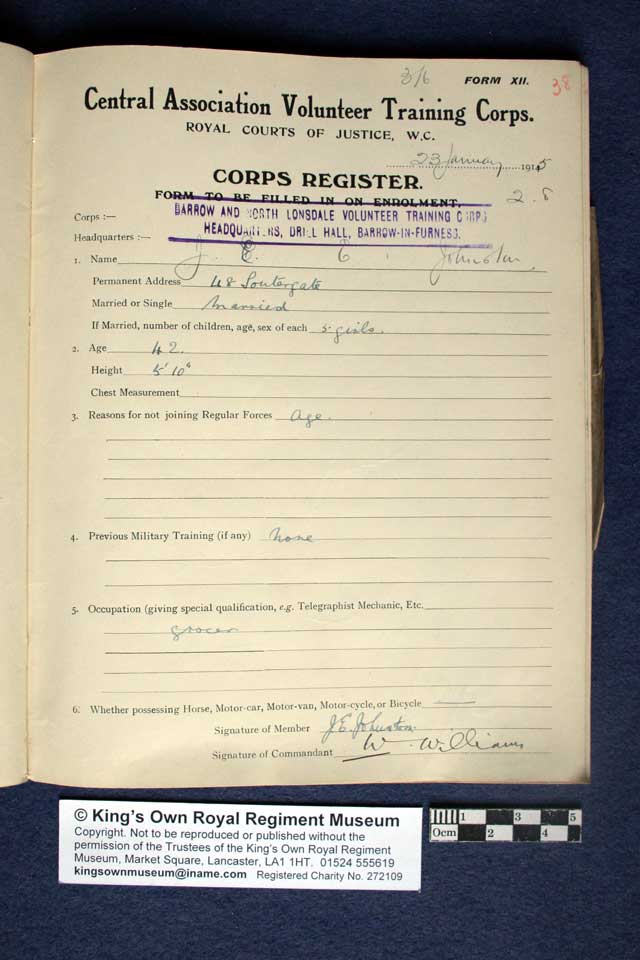 3/6 FORM XII. 38
Central Association Volunteer Training Corps.
ROYAL COURTS OF JUSTICE, W.C.
23 January 1915
CORPS REGISTER.
FORM TO BE FILLED IN ON ENROLMENT. 2.8
Corps :— BARROW AND NORTH LONSDALE VOLUNTEER TRAINING CORPS
Headquarters :— HEADQUARTERS, DRILL HALL, BARROW-IN-FURNESS.
1. Name J. E. Johnston
Permanent Address 48 Soutergate
Married or Single Married
If Married, number of children, age, sex of each 5 girls.
2. Age 42.
Height 5' 10"
Chest Measurement
3. Reasons for not joining Regular Forces Age.
4. Previous Military Training (if any) none
5. Occupation (giving special qualification, e.g. Telegraphist Mechanic, Etc.
grocer
6. Whether possessing Horse, Motor-car, Motor-van, Motor-cycle, or Bicycle
Signature of Member J.E. Johnston
Signature of Commandant W. Williams
© King's Own Royal Regiment Museum
Copyright. Not to be reproduced or published without the
permission of the Trustees of the King's Own Royal Regiment
Museum, Market Square, Lancaster, LA1 1HT. 01524 555619
kingsownmuseum@iname.com Registered Charity No. 272109
1 3 5
0cm 2 4